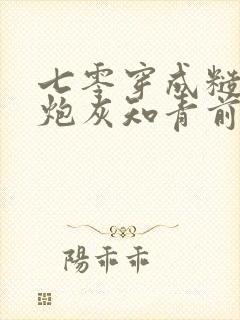 七零穿成糙
炮灰知青前
陽乖乖